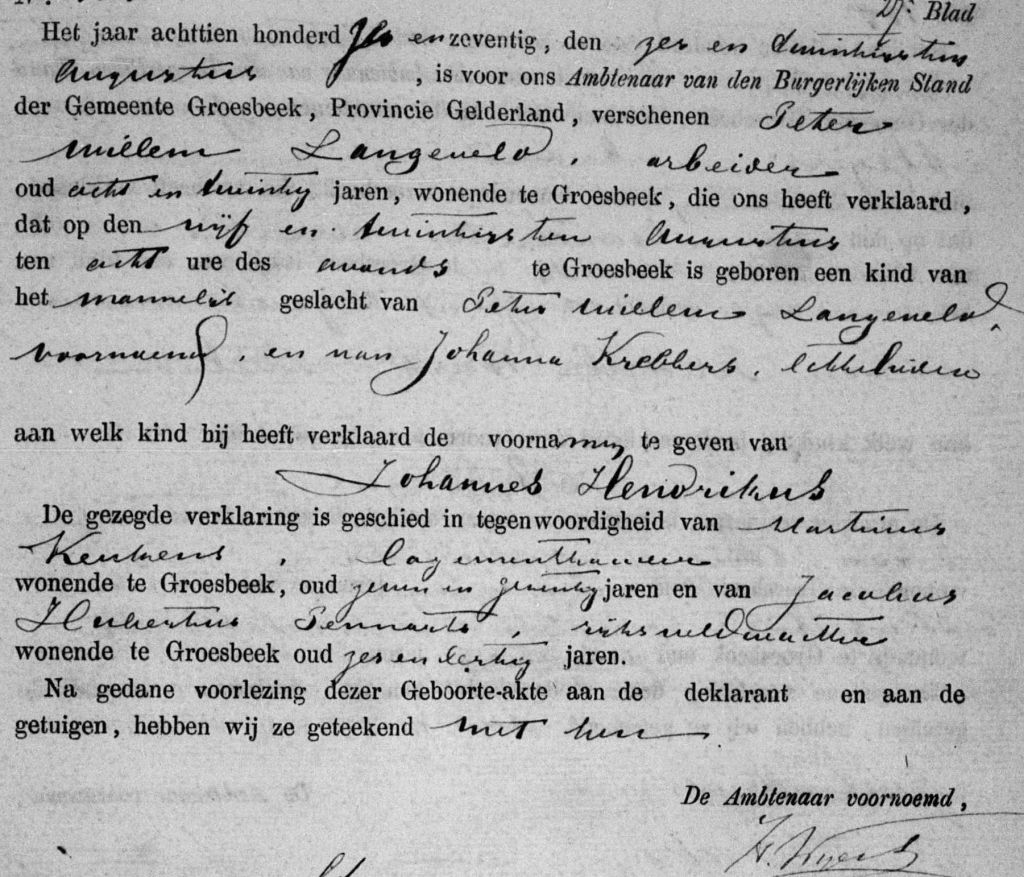 Blad
Het jaar achttien honderd zes en zeventig, den zes en twintigsten
Augustus, is voor ons Ambtenaar van den Burgerlijken Stand
der Gemeente Groesbeek, Provincie Gelderland, verschenen Peter
Willem Langeveld, arbeider
oud acht en twintig jaren, wonende te Groesbeek, die ons heeft verklaard,
dat op den vijf en twintigsten Augustus
ten acht ure des avonds te Groesbeek is geboren een kind van
het mannelijk geslacht van Peter Willem Langeveld
voornoemd, en van Johanna Krebbers, echtelieden
aan welk kind hij heeft verklaard de voornamen te geven van
Johannes Hendrikus
De gezegde verklaring is geschied in tegenwoordigheid van Martinus
Keukens, logementhouder
wonende te Groesbeek, oud zeven en zeventig jaren en van Jacobus
Hubertus Pennarts, rijksveldwachter
wonende te Groesbeek oud zes en dertig jaren.
Na gedane voorlezing dezer Geboorte-akte aan de deklarant en aan de
getuigen, hebben wij ze geteekend met hen.
De Ambtenaar voornoemd,